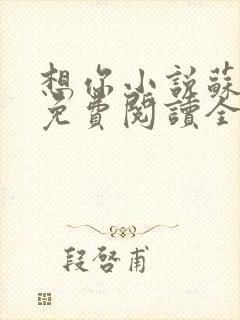 想你小説蘇
免費閱讀全
段啓甫